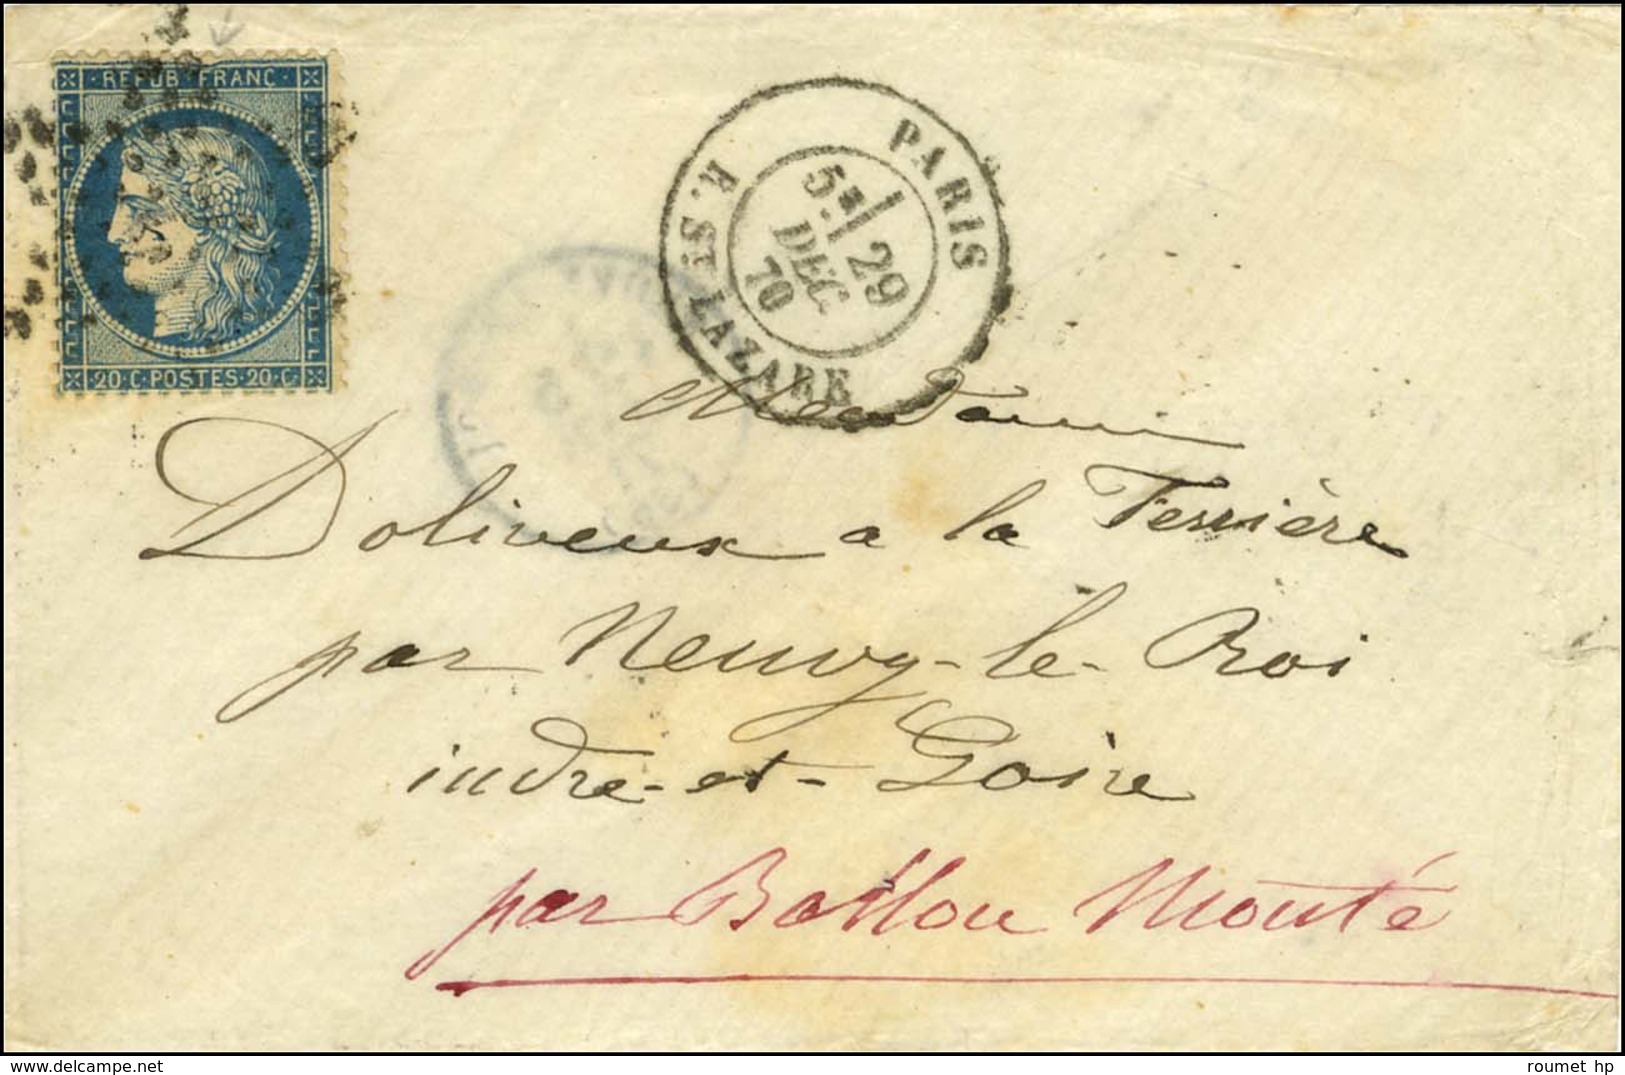 REPUB·FRANC
20·C·POSTES·20·C
PARIS
R. ST LAZARE
5E
29
DEC.
70
Madame
Doliveux a la Ferrière
par Neuvy-le-Roi
indre-et-Loire
par Ballon Monté
www.delcampe.net
roumet hp